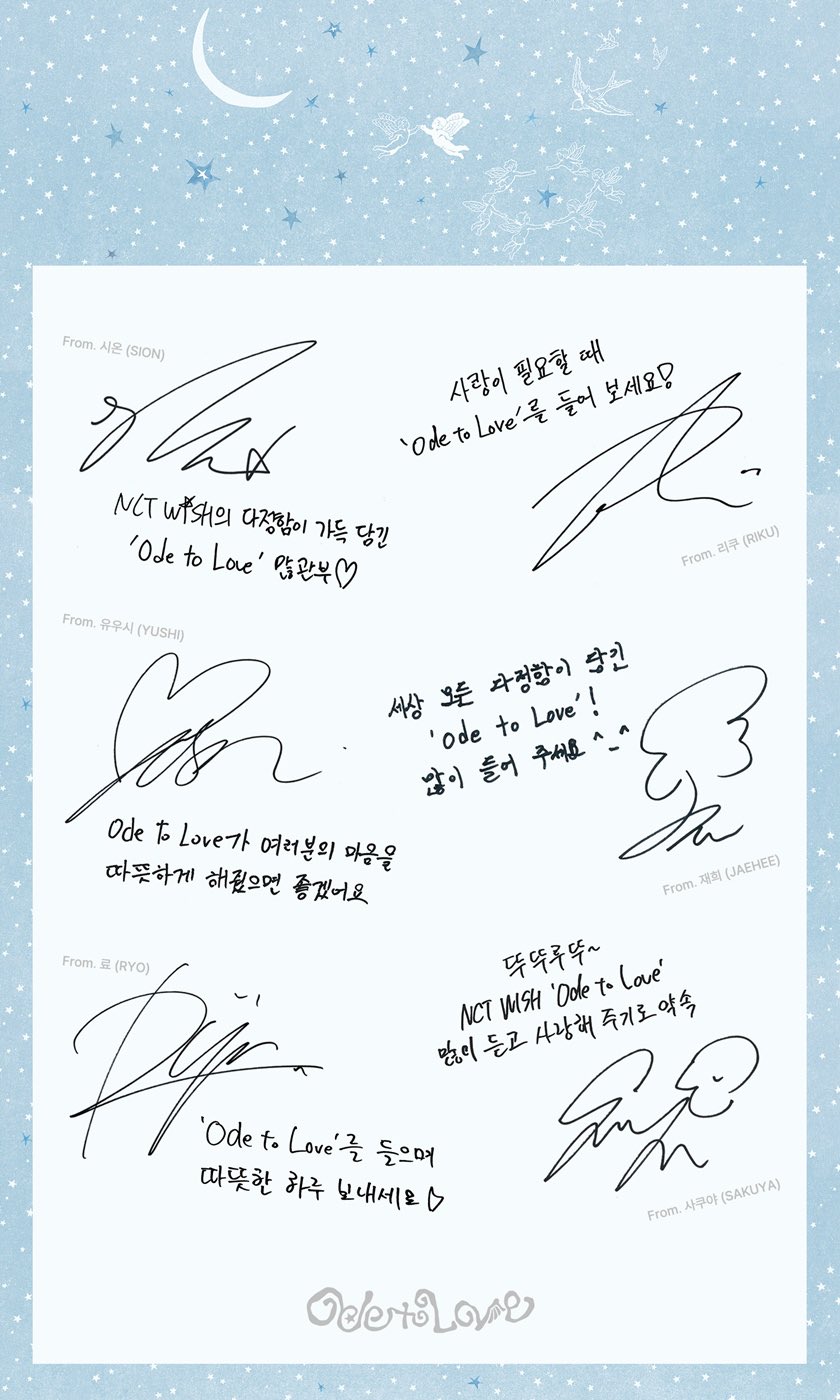 From. 시온 (SION)
NCT WISH의 다정함이 가득 담긴
'Ode to Love' 많관부♡
사랑이 필요할 때
'Ode to Love'를 들어 보세요♡
From. 리쿠 (RIKU)
From. 유우시 (YUSHI)
Ode to Love가 여러분의 마음을
따뜻하게 해줬으면 좋겠어요
세상 모든 다정함이 담긴
'Ode to Love'!
많이 들어 주세요 ^_^
From. 재희 (JAEHEE)
From. 료 (RYO)
'Ode to Love'를 들으며
따뜻한 하루 보내세요♡
뚜뚜루뚜~
NCT WISH 'Ode to Love'
많이 듣고 사랑해 주기로 약속
From. 사쿠야 (SAKUYA)
Ode to Love